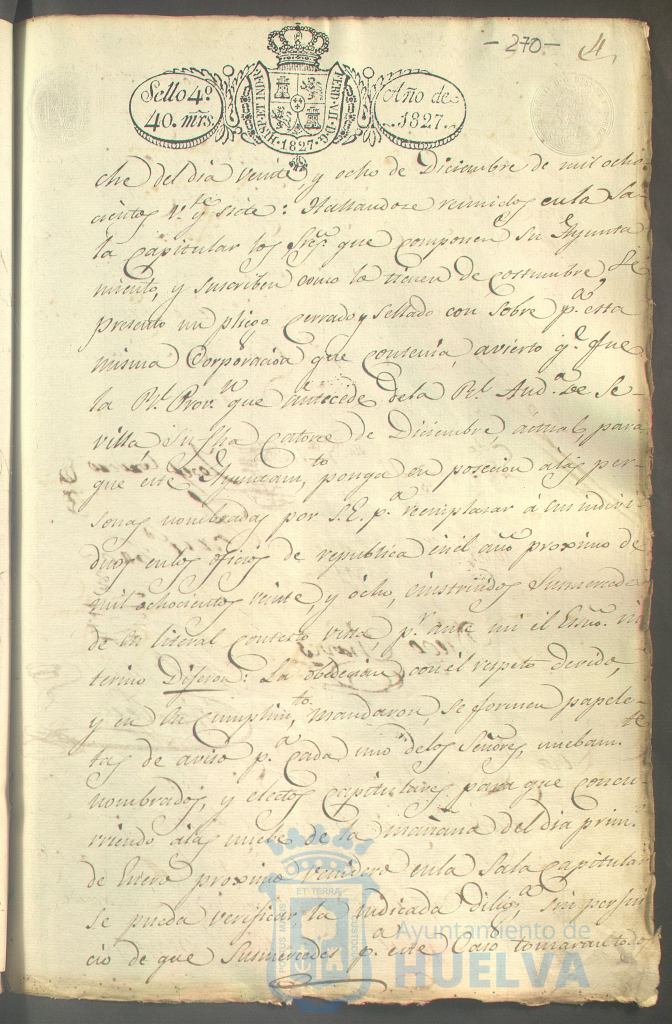 - 270 - 4
Sello 4º
40. mrs.
HISP. ET IND. R. FERD. VII. D. G. 1827.
Año de
1827.
che del dia veinte, y ocho de Diciembre de mil ocho-
cientos v.te y siete: Hallandose reunidos en la Sa-
la capitular los Sres. que componen su Ayunta-
miento, y suscriben como lo tienen de costumbre Se
presento un pliego cerrado y sellado con sobre p.a esta
misma Corporacion que contenia, avierto q.e fue
la Rl. Prov.n que antecede de la Rl. Aud.a de Se-
villa su fha catorce de Diciembre, actual, para
que este Ayuntam.to ponga en posecion a las per-
sonas nombradas por S.E. p.a reemplasar á sus indivi-
duos en los oficios de republica en el año proximo de
mil ochocientos veinte, y ócho, é instruidos Sus mercedes
de su literal contesto vista p.r ante mi el Esno. in-
terino Dijeron: La obdecian con el respeto devido,
y en su cumplim.to mandaron, se formen papele-
tas de aviso p.a cada uno de los Señores, nuebam.te
nombrados, y electos capitulares para que concu-
rriendo a las nueve de la mañana del dia prim.o
de Enero proximo venidero en la Sala capitular
se pueda verificar la indicada dilig.a, sin perjui-
cio de que Sus mercedes p.a este Caso tomaran todos
Ayuntamiento de
HUELVA